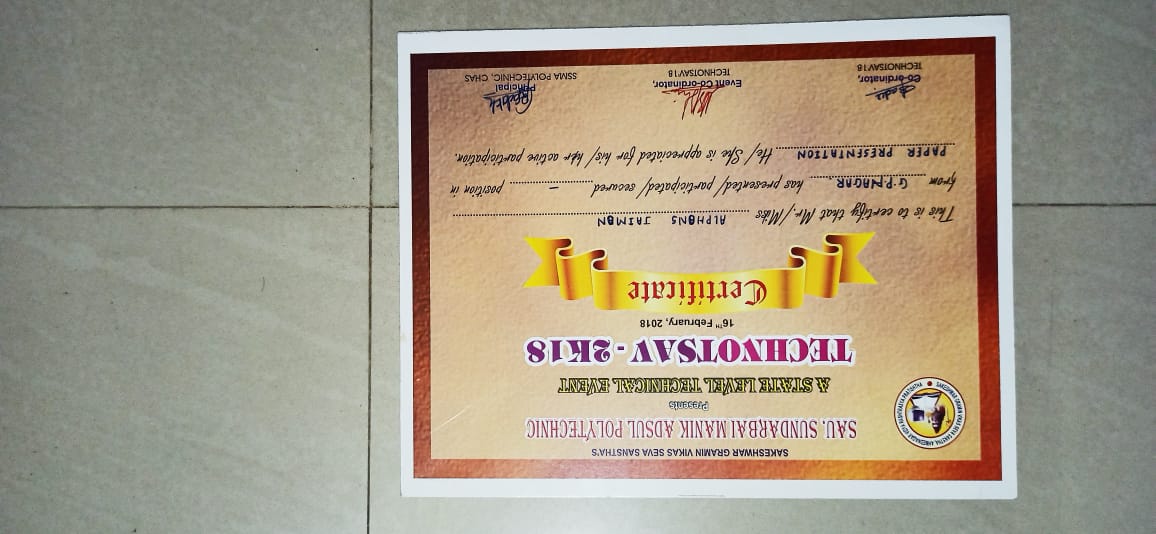 SAKESHWAR GRAMIN VIKAS SEVA SANSTHA'S
SAU. SUNDARBAI MANIK ADSUL POLYTECHNIC
Presents
A STATE LEVEL TECHNICAL EVENT
TECHNOTSAV - 2K18
16TH February, 2018
Certificate
This is to certify that Mr./Miss ALPHONS JAIMON
from G.P.NAGAR has presented/ participated/ secured - position in
PAPER PRESENTATION He/ She is appreciated for his/ her active participation.
Co-ordinator, Event Co-ordinator, Principal
TECHNOTSAV18 TECHNOTSAV18 SSMA POLYTECHNIC, CHAS